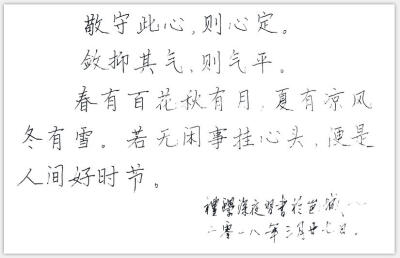 敬守此心,则心定。
敛抑其气,则气平。
春有百花秋有月,夏有凉风
冬有雪。若无闲事挂心头,便是
人间好时节。
深夜
二零一八年三月廿七日.